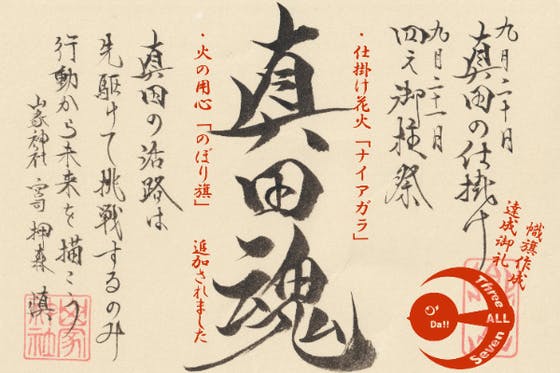 九月二十日
真田の仕掛け
九月二十一日
四之御柱祭
幟旗作成
達成御礼
Three
ALL
Seven
Da!!
・仕掛け花火「ナイアガラ」
真田魂
・火の用心「のぼり旗」
追加されました
真田の活路は
先駆けて挑戦するのみ
行動から未来を描こう
山家神社 宮司 押森 慎
山家神社